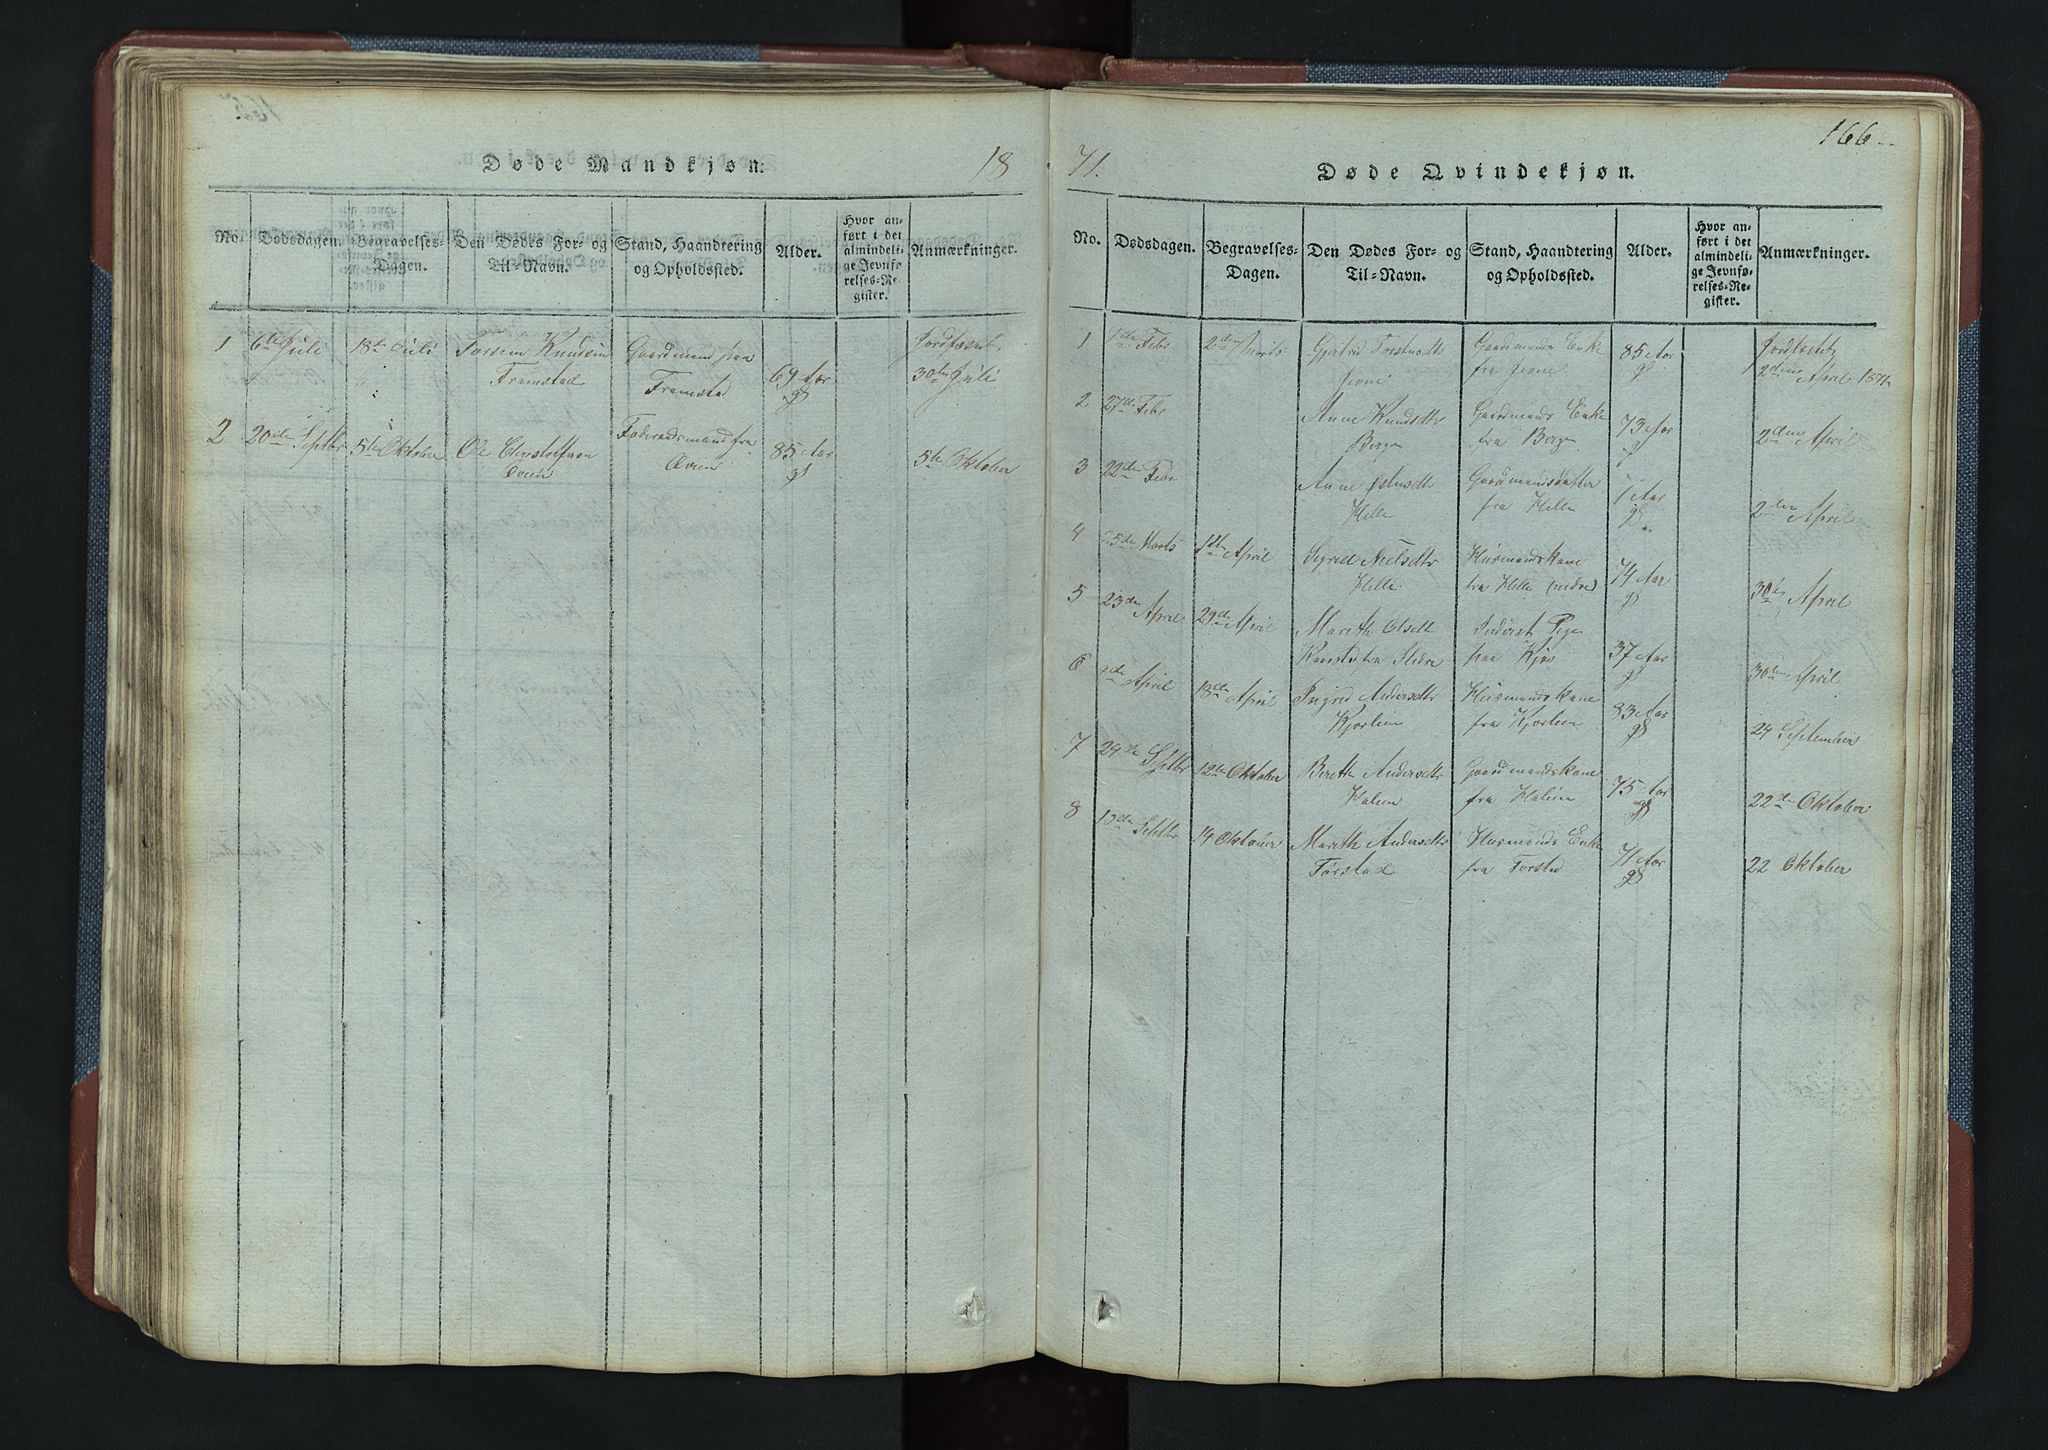 Døde Mandkjøn.
18
No.
Dødsdagen.
Begravelses-
Dagen.
Den Dødes For- og
Til-Navn.
Stand, Haandtering
og Opholdssted.
Alder.
Hvor an-
ført i det
almindeli-
ge Jevnfø-
relses-Re-
gister.
Anmærkninger.
1
6te Juli
18de Juli
Torsten Knudsen
Framstad
Gaardmand fraa
Framstad
69 Aar
gl
Jordfæstet
30te Juli
2
20de Septbr
5te Oktober
Ole Christofersen
Øvren
Føderaadsmand fra
Øvren
85 Aar
gl
5te Oktober
166
71.
Døde Qvindekjøn.
No.
Dødsdagen.
Begravelses-
Dagen.
Den Dødes For- og
Til-Navn.
Stand, Haandtering
og Opholdssted.
Alder.
Hvor an-
ført i det
almindeli-
ge Jevnfø-
relses-Re-
gister.
Anmærkninger.
1
Febr
2den Marts
Gjertrud Torstendtr
Gaardmands Enke
fra
85 Aar
gl
Jordfæstet
2den April 1871
2
27de Febr
Anne Knudsdtr
Berge
Gaardmands Enke
fra Berge
73 Aar
gl
2den April
3
22de Febr
Anne
Helle
Gaardmandsdatter
fra Helle
1 Aar
gl
2den April
4
25de Marts
1ste April
Sigrid Nielsdtr
Helle
Huusmandskone
fra Helle (nedre)
74 Aar
gl
30te April
5
23de April
29de April
Marith Olsdtr
fra Slidre
Inderst Pige
fraa Kjøs
37 Aar
gl
30te April
6
April
18de April
Ingrid Andersdtr
Kjørlien
Huusmandskone
fra Kjørlien
83 Aar
gl
24 September
7
24de Septbr
12te Oktober
Berette Andersdtr
Halien
Gaardmandskone
fra Halien
75 Aar
gl
22de Oktober
8
13de Septbr
14 Oktober
Marith Andersdtr
Torstad
Husmands Enke
fra Torstad
71 Aar
gl
22 Oktober